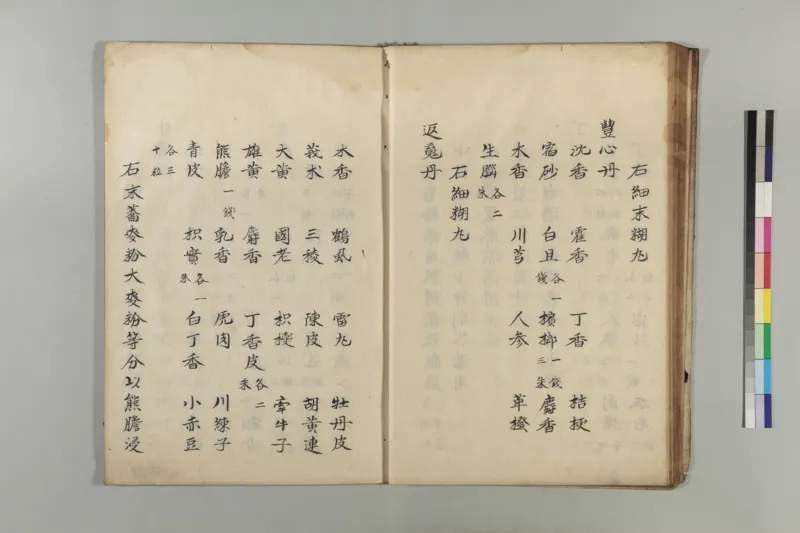 右細末糊丸
豐心丹
沈香 藿香 丁香 桔梗
宿砂 白旦各一錢 檳榔一錢三朱 麝香
木香 川芎 人参 革撥
生腦各二朱
右細糊丸
返魂丹
木香 鶴虱 雷丸 牡丹皮
莪朮 三稜 陳皮 胡黄連
大黄 國老 枳椇 牽牛子
雄黄 麝香 丁香皮各二朱
熊膽一錢 乳香 虎肉 川楝子
青皮 枳實各一朱 白丁香 小赤豆
各三十粒
右末蕎麥粉大麥粉等分以熊膽浸